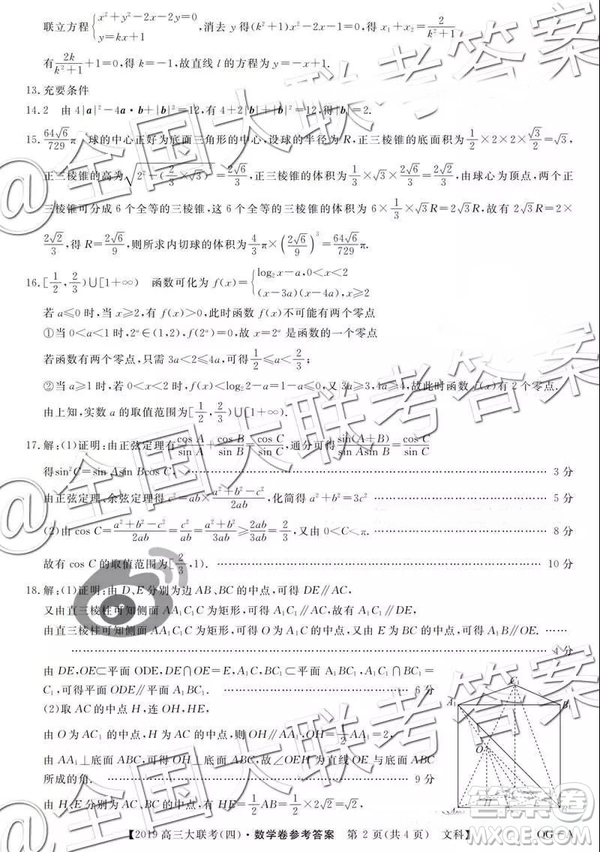 联立方程{x²+y²-2x-2y=0 y=kx+1,消去y得(k²+1)x²-2x-1=0,得x₁+x₂=2/(k²+1)
有2k/(k²+1)+1=0,得k=-1,故直线l的方程为y=-x+1.
13.充要条件
14.2 由4|a|²-4a·b+|b|²=12,有4+2|b|+|b|²=12,得|b|=2.
15.64√6/729π 球的中心正好为底面三角形的中心,设球的半径为R,正三棱锥的底面积为1/2×2×2×√3/2=√3,
正三棱锥的高为
正三棱锥的体积为1/3×√3×2√6/3=2√2/3,由球心为顶点,两个正
三棱锥可分成6个全等的三棱锥,这6个全等的三棱锥的体积为6×1/3×√3R=2√3R,故有2√3R=
2√2/3,得R=,则所求内切球的体积为4/3π×(2√6/9)³=64√6/729π.
16.[1/2,2/3)∪[1+∞) 函数可化为f(x)={log₂x-a,0<x<2 (x-3a)(x-4a),x≥2
若函数f(x)有两个零点
若a≤0时,当x≥2,有f(x)>0,此时函数f(x)不可能有两个零点
①当0<a<1时,2ᵃ∈(1,2),f(2ᵃ)=0,故x=2ᵃ是函数的一个零点
若函数有两个零点,只需3a<2≤4a,可得1/2≤a<2/3
②当a≥1时,若0<x<2时,f(x)<log₂2-a=1-a≤0,故此时函数f(x)有两个零点
由上知,实数a的取值范围为[1/2,2/3)∪[1,+∞).
17.解:(1)证明:由正弦定理有cosA/sinA+cosB/sinB=cosC/sinC,通分可得sin(A+B)/sinAsinB=cosC/sinC
得sin²C=sinAsinBcosC, 3分
由正弦定理、余弦定理得c²=ab×(a²+b²-c²)/2ab,化简得a²+b²=3c² 5分
(2)由cosC=(a²+b²-c²)/2ab=≥2ab/3ab=2/3,又由0<C<π. 8分
故有cosC的取值范围[2/3,1). 10分
18.解:(1)证明:由D、E分别为边AB、BC的中点,可得DE∥AC,
又由直三棱柱可知侧面AA₁C₁C为矩形,可得O为A₁C的中点,可得A₁B∥OE. 4分
由DE,OE⊂平面ODE,DE∩OE=E,A₁B,AC⊂平面A₁BC,A₁B∩AC=
C,可得平面ODE∥平面A₁BC. 6分
(2)取AC的中点H,连OH、HE,
由O为A₁C的中点,H为AC的中点,则OH∥AA₁,OH=1/2AA₁=1,
由AA₁⊥底面ABC,可得OH⊥底面ABC,故∠OEH为直线OE与底面ABC
所成的角. 9分
由H、E分别为AC、BC的中点
【2019高三大联考(四)·数学卷参考答案 第2页(共4页) 文科】 QG-A
@全国大联考答案